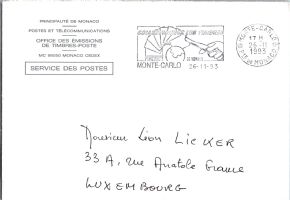 PRINCIPAUTE DE MONACO
POSTES ET TÉLÉCOMMUNICATIONS
OFFICE DES ÉMISSIONS
DE TIMBRES-POSTE
MC 98050 MONACO CEDEX
SERVICE DES POSTES
MONTE-CARLO 26-11-93
MONTE-CARLO
17 H
26-11
1993
Monsieur Léon LICKER
33 A, rue Anatole France
LUXEMBOURG